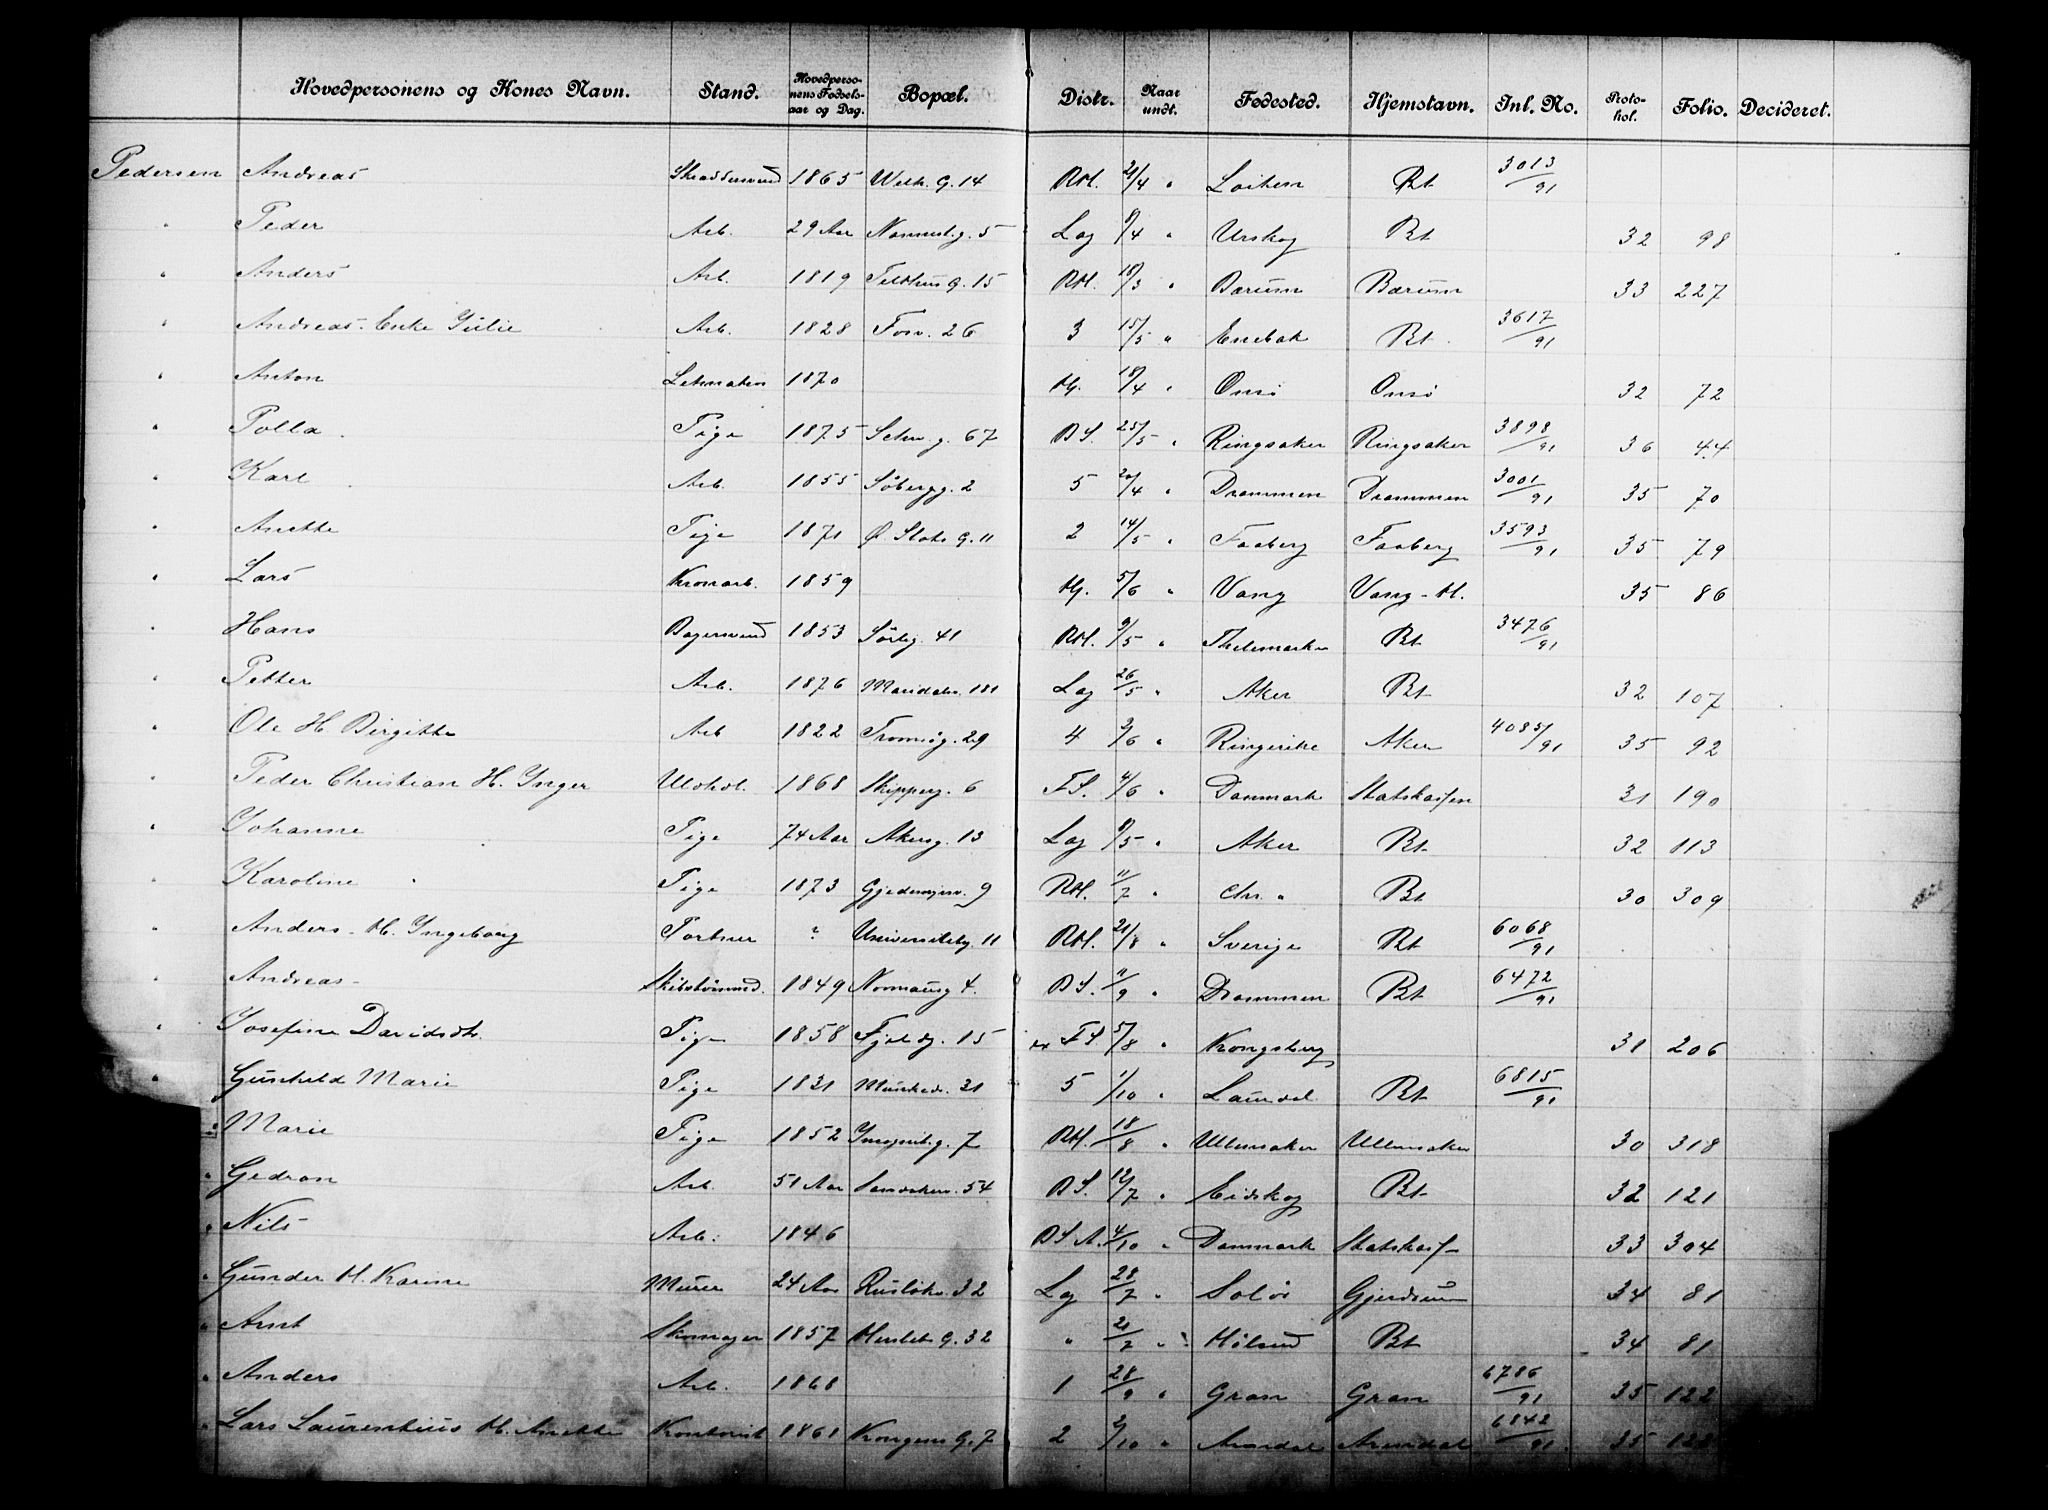 Hovedpersonens og Kones Navn. Stand. Hovedperso-nens Fødsels-aar og Dag. Bopæl. Distr. Naar undt. Fødested. Hjemstavn. Inl. No. Proto-kol. Folio. Decideret.
Pedersen Andreas 1865 Welh. G. 14 RH. 21/4 " Løiten Bt 3013/91
" Peder Arb. 29 Aar 5 Lag 8/4 " Urskog Bt 32 98
" Anders Arb. 1819 Telthus G. 15 RH. 18/3 " Bærum Bærum 33 227
" Andreas - Enke Julie Arb. 1828 Fosv. 26 3 15/5 " Enebak Bt 3617/91
" Anton 1870 18/4 " Onsø Onsø 32 72
" Polla Pige 1875 Schw. g. 67 BS. 25/5 " Ringsaker Ringsaker 3898/91 36 44
" Karl Arb. 1855 Söbergg. 2 5 20/4 " Drammen Drammen 3001/91 35 70
" Anette Pige 1871 Ø. Slots G. 11 2 14/5 " Faaberg Faaberg 3593/91 35 79
" Lars Kronarb. 1859 5/6 " Vang Vang - H. 35 86
" Hans Bagersvend 1853 Sörlig. 41 RH. 9/5 " Thelemarken Bt 3476/91
" Petter Arb. 1876 Maridalsv. 181 Lag 26/5 " Aker Bt 32 107
" Ole H. Birgitte Arb 1822 Tromsög. 29 4 2/6 " Ringerike Aker 4085/91 35 92
" Peder Christian H. Inger 1868 Skipperg. 6 FS. 4/6 " Danmark Statskassen 31 190
" Johanne Pige 74 Aar Akersg. 13 Lag 8/5 " Aker Bt 32 113
" Karoline Pige 1873 9 RH. 11/7 " Chr. a Bt 30 309
" Anders - H. Ingeborg Portner ? Universitetsg. 11 RH. 21/8 " Sverige Bt 6068/91
" Andreas - 1849 Normannsg 4. BS. 11/9 " Drammen Bt 6472/91
" Josefine Davidsdtr. Pige 1858 Fjeldg. 15 FS 5/8 " Kongsberg 31 206
" Gunhild Marie Pige 1831 Munkedv. 31 5 1/10 " Laurdal Bt 6815/91
" Marie Pige 1852 7 RH. 18/8 " Ullensaker Ullensaker 30 318
" Gedion Arb. 51 Aar Sandakerv. 54 BS. 12/7 " Eidskog Bt 32 121
" Nils Arb. 1846 BSA. 4/10 " Danmark Statskass 33 304
" Gunder H. Karine Murer 24 Aar Ruslökv. 32 Lag 28/7 " Solør Gjerdrum 34 81
" Arnt Skomager 1857 Herslebs G. 32 " 21/7 " Höland Bt 34 81
" Anders Arb. 1868 1 28/9 " Gran Gran 6786/91 35 122
" Lars Laurentius H. Anette Kontorist 1861 Kongens G. 7 2 2/10 " Arendal Arendal 6842/91 35